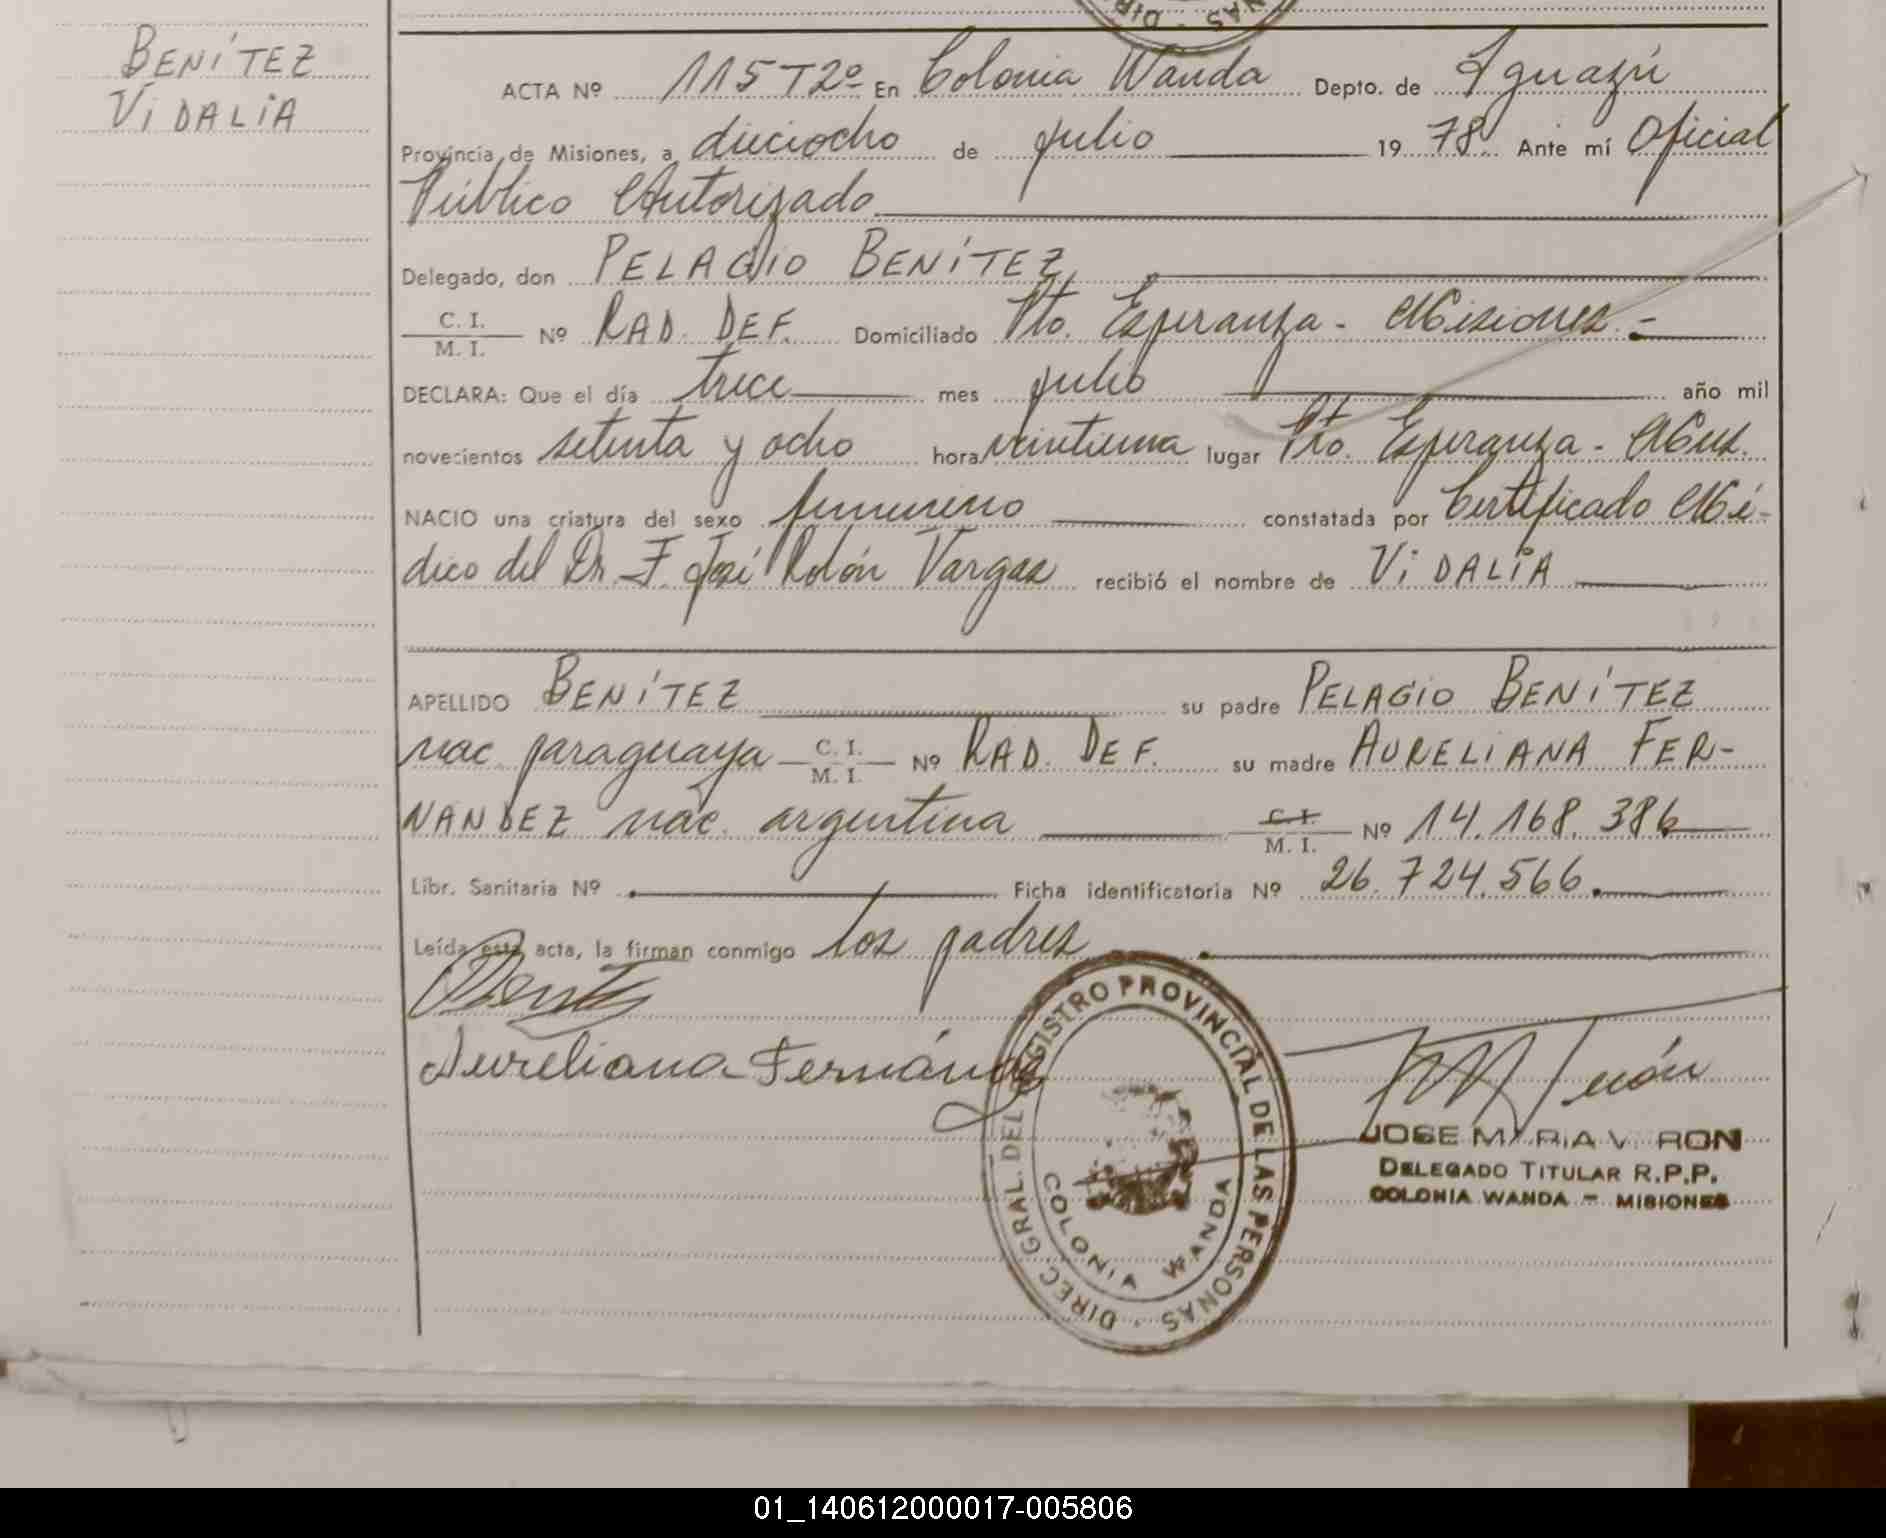 BENÍTEZ
VIDALIA
ACTA Nº 115 T2º En Colonia Wanda Depto. de Iguazú
Provincia de Misiones, a dieciocho de julio 19 78 Ante mí Oficial
Público Autorizado
Delegado, don PELAGIO BENÍTEZ
C. I.
M. I. Nº RAD. DEF. Domiciliado Pto. Esperanza - Misiones.-
DECLARA: Que el día trece mes julio año mil
novecientos setenta y ocho hora veintiuna lugar Pto. Esperanza - Mnes.
NACIO una criatura del sexo femenino constatada por Certificado Mé-
dico del Dr. F. José Rolón Vargas recibió el nombre de VIDALIA
APELLIDO BENÍTEZ su padre PELAGIO BENÍTEZ
nac. paraguaya C. I. M. I. Nº RAD. DEF. su madre AURELIANA FER-
NANDEZ nac. argentina C. I. M. I. Nº 14.168.386
Libr. Sanitaria Nº Ficha identificatoria Nº 26.724.566.
Leída esta acta, la firman conmigo los padres
Aureliana Fernández
DIREC. GRAL. DEL REGISTRO PROVINCIAL DE LAS PERSONAS
COLONIA WANDA
JOSE MARIA V. RON
DELEGADO TITULAR R.P.P.
COLONIA WANDA - MISIONES
01_140612000017-005806